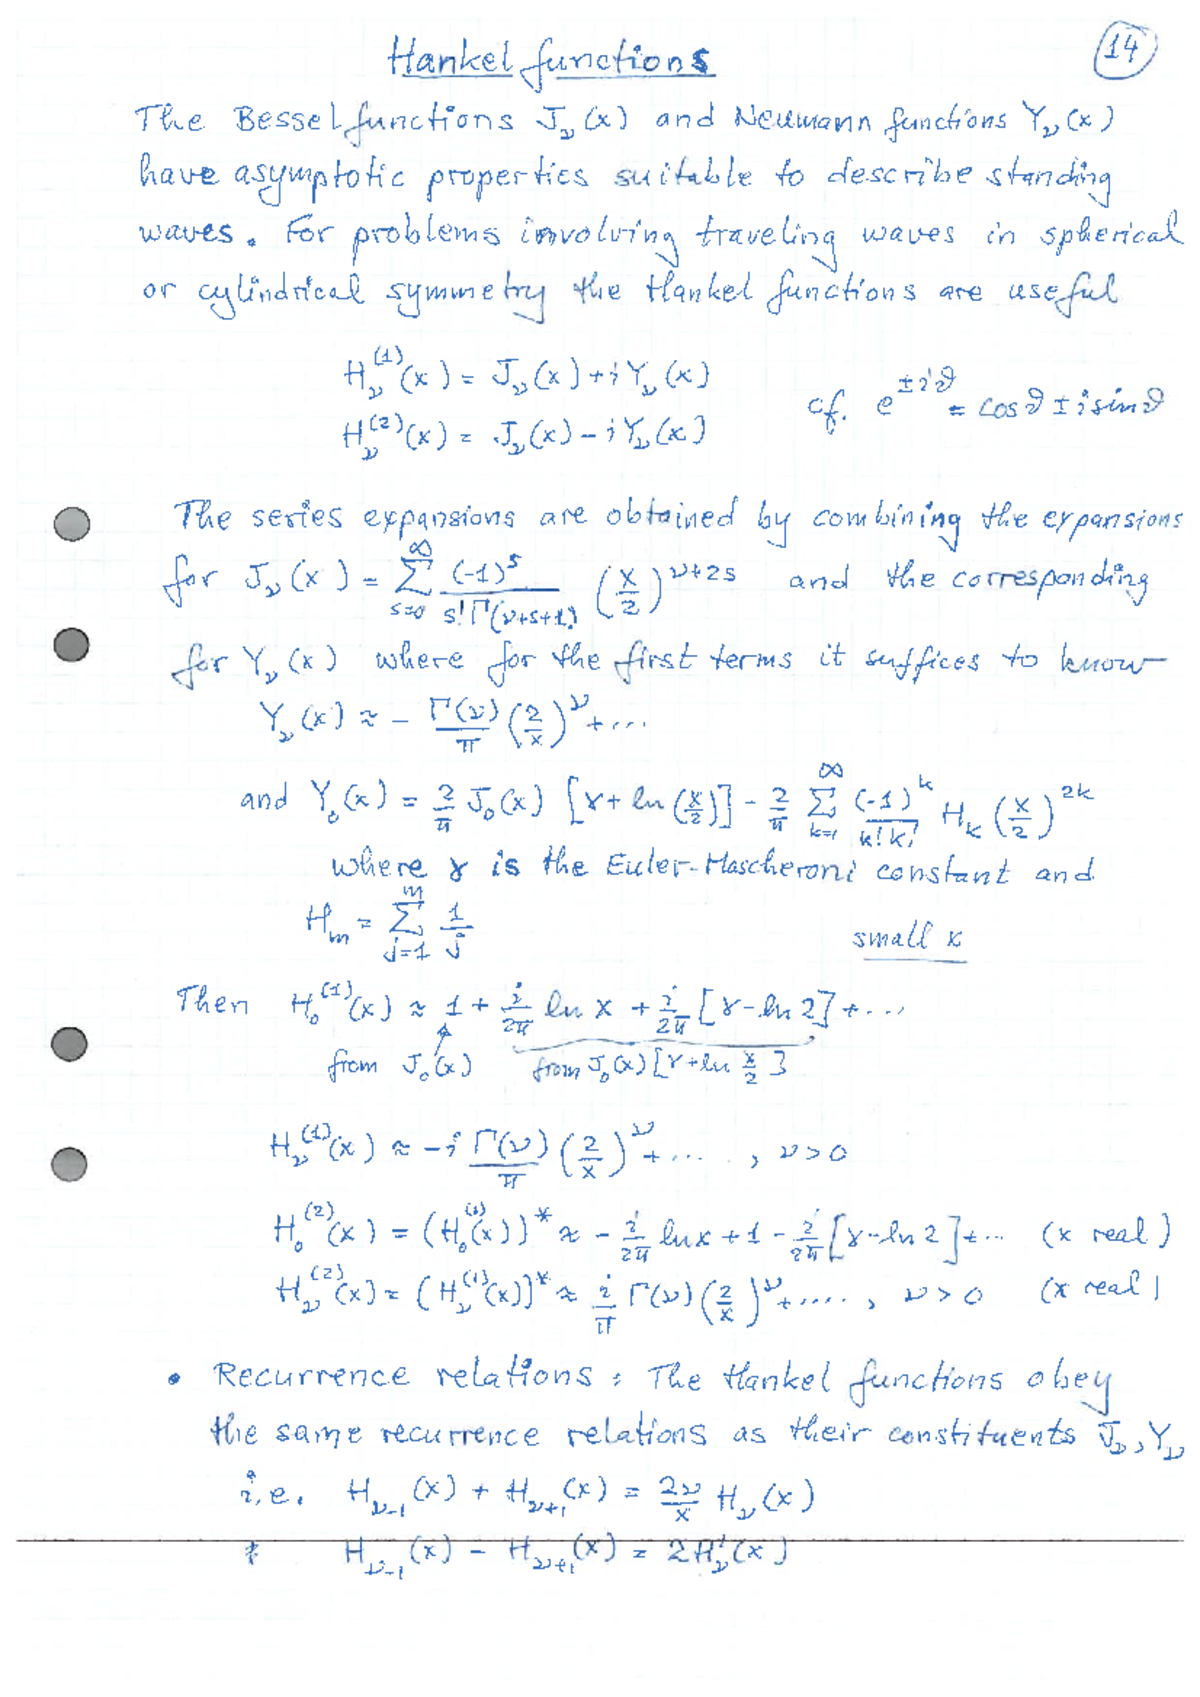 Hankel functions
14
The Bessel functions J_ν(x) and Neumann functions Y_ν(x)
have asymptotic properties suitable to describe standing
waves. For problems involving traveling waves in spherical
or cylindrical symmetry the Hankel functions are useful
H_ν^(1)(x) = J_ν(x) + i Y_ν(x)
H_ν^(2)(x) = J_ν(x) - i Y_ν(x)
cf. e^{±iϑ} = cos ϑ ± i sin ϑ
The series expansions are obtained by combining the expansions
for J_ν(x) = ∑_{s=0}^∞ (-1)^s / (s! Γ(ν+s+1)) (x/2)^{ν+2s} and the corresponding
for Y_ν(x) where for the first terms it suffices to know
Y_ν(x) ≈ - Γ(ν)/π (2/x)^ν + ...
and Y_0(x) = 2/π J_0(x) [γ + ln(x/2)] - 2/π ∑_{k=1}^∞ (-1)^k/(k!k!) H_k (x/2)^{2k}
where γ is the Euler-Mascheroni constant and
H_m = ∑_{j=1}^m 1/j
small x
Then H_0^(1)(x) ≈ 1 + i/2π ln x + i/2π [γ - ln 2] + ...
from J_0(x) from J_0(x)[γ + ln x/2]
H_ν^(1)(x) ≈ -i Γ(ν)/π (2/x)^ν + ... , ν > 0
H_0^(2)(x) = (H_0^(1)(x))* ≈ - i/2π ln x + 1 - i/2π [γ - ln 2] + ... (x real)
H_ν^(2)(x) = (H_ν^(1)(x))* ≈ i/π Γ(ν) (2/x)^ν + ..... , ν > 0 (x real)
• Recurrence relations: The Hankel functions obey
the same recurrence relations as their constituents J_ν, Y_ν
i.e. H_{ν-1}(x) + H_{ν+1}(x) = 2ν/x H_ν(x)
H_{ν-1}(x) - H_{ν+1}(x) = 2H'_ν(x)